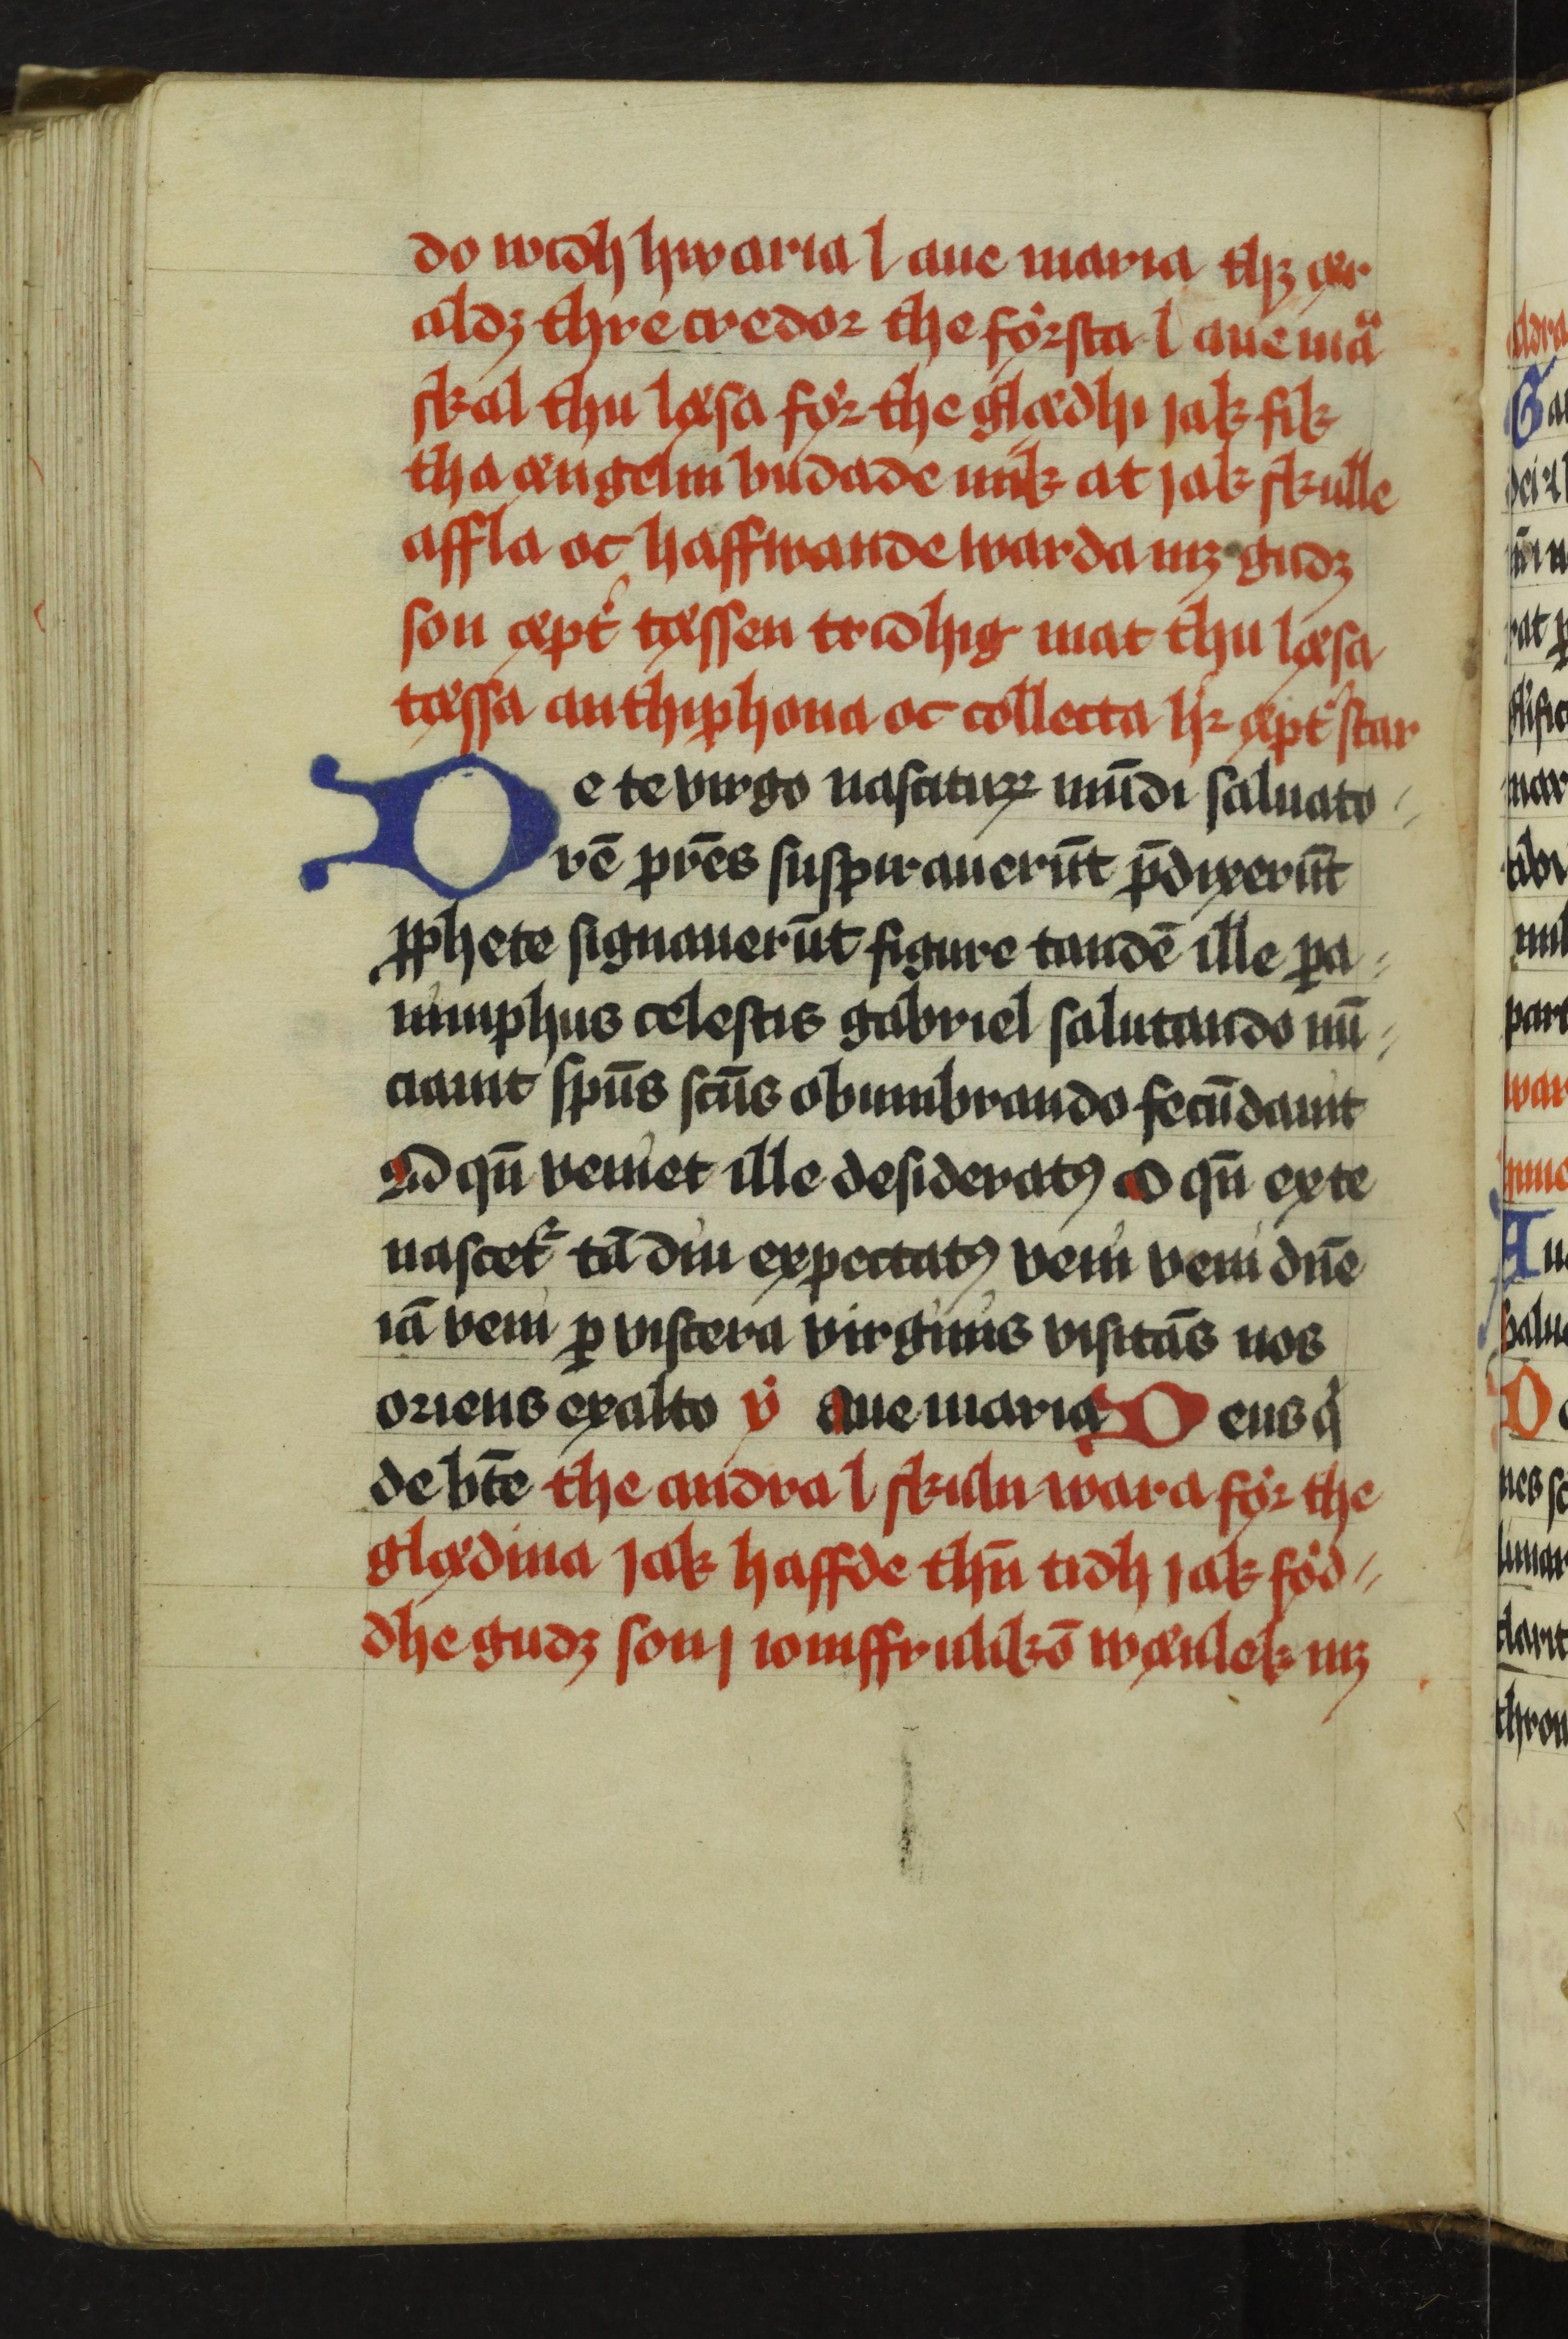 do widh hwaria l aue maria thꝫ ær
aldꝫ thre credor the første l aue maᷓ
skal thu læsa før the glædhi jak fik
tha ængelin budade mik at jak skulle
affla oc haffwande warda mꝫ gudz
son æpt͛ tæssen tridhig mat thu læsa
tæssa anthiphona oc collecta hꝛ æpt͛ star
De te virgo nascituꝝ mūdi saluato-
rē prēs suspirauerūt p̄dixerūt
ꝓphete signauerūt figure tandē ille pa-
nimphus celestis gabriel salutando nū-
ciauit spūs scūs obumbrando fecūdauit
O qn̄ veniet ille desideratꝰ O qn̄ ex te
nascet᷑ tā diu expectatꝰ veni veni dn̄e
iā veni ꝑ viscera virginis visitās nos
oriens ex alto v̇ Aue maria Deus qͥ
de bt̄e the andra l skuln wara før the
glædina jak haffde thn̄ tidh jak fød-
dhe gudz son j iomffrulikō wænlek mꝫ